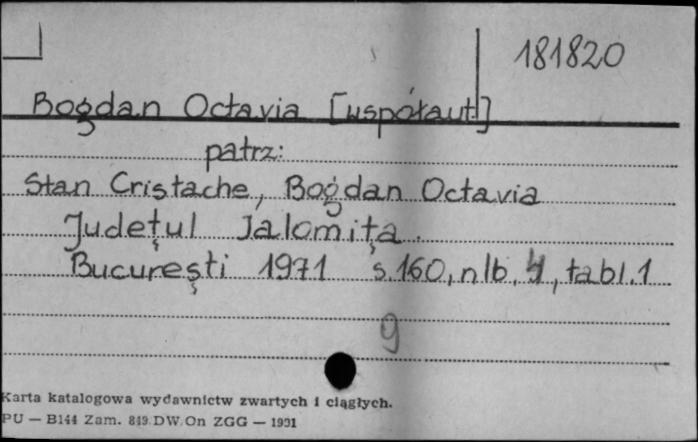 181820
Bogdan Octavia [współaut.]
patrz:
Stan Cristache, Bogdan Octavia
Județul Jalomița.
București 1971 s.160, nlb. 4, tabl.1
9
Karta katalogowa wydawnictw zwartych i ciągłych.
PU — B144 Zam. 849 DW.On ZGG — 1991